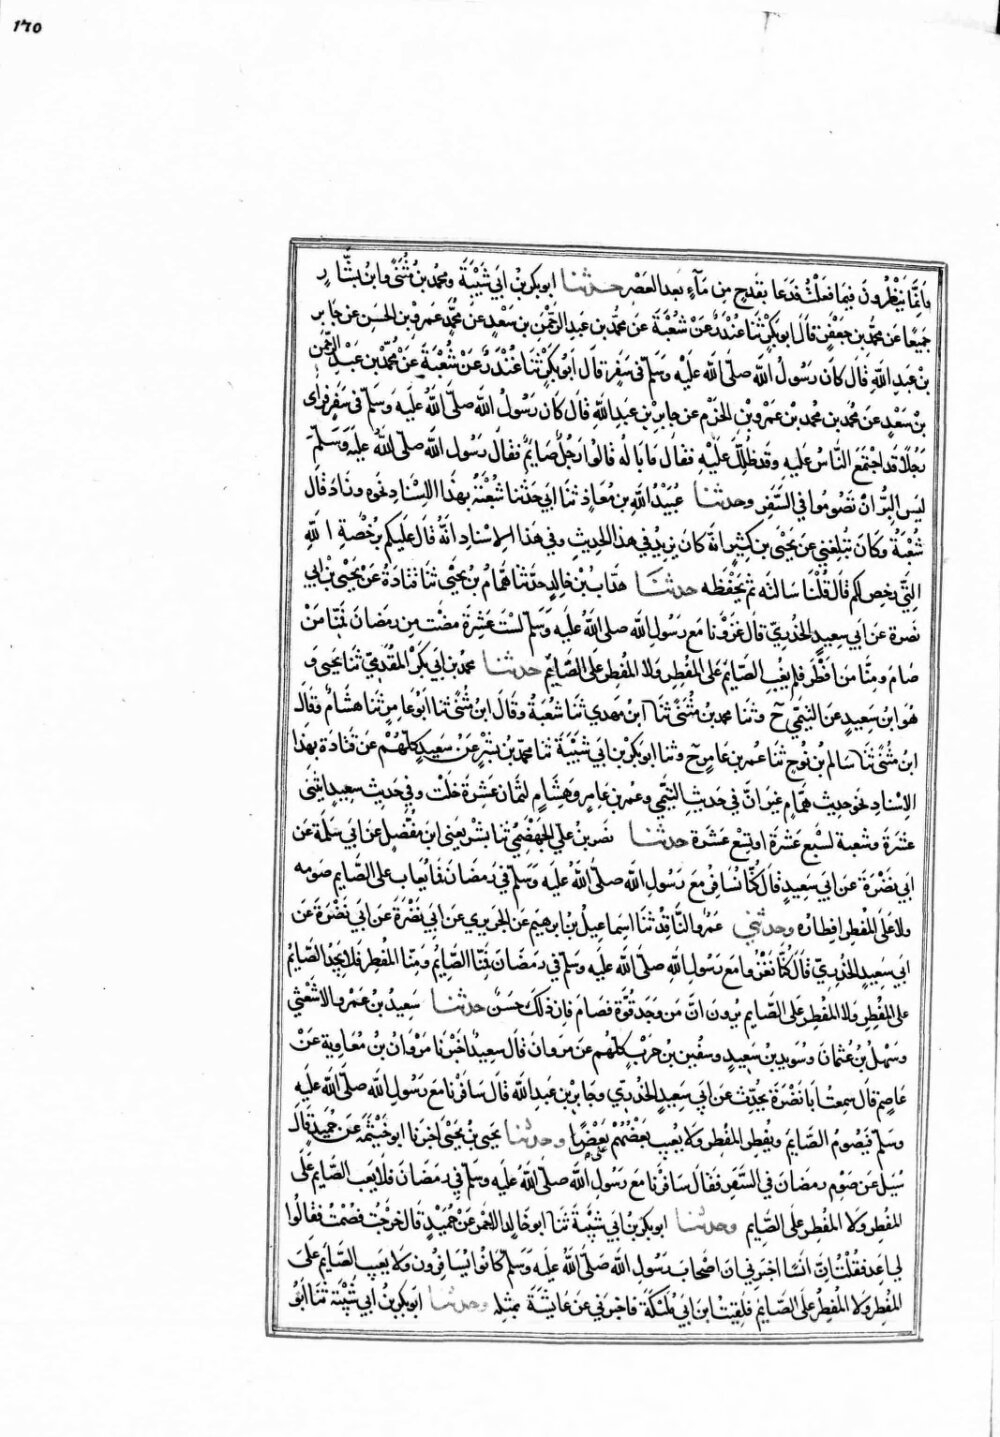 ١٦٥
وَاِنَّمَا يَنْظُرُونَ فِيمَا فَعَلْتَ فَدَعَا بِقَدَحٍ مِن مَآءٍ بَعدَ العَصْرِ حدثنا ابوبكر بنُ ابي شَيْبَةَ ومحمدُ بنُ مُثَنّى وابنُ بَشَّارٍ
جَمِيعًا عَن محمّد بن جَعْفَرٍ قَالَ ابوبَكرٍ ثنا غُنْدَرٌ عَنْ شُعْبَةَ عَن محمّد بن عَبدِ الرَّحْمٰنِ بنِ سَعْدٍ عَن محمّدِ بن عَمرِو بن الحَسنِ عَن جَابر
بن عَبدِ اللّٰهِ قَالَ كَانَ رَسُولُ اللّٰه صَلّى اللّٰه عَلَيْه وَسَلّم فى سَفَرٍ قَالَ ابُوبَكرٍ ثَنَا غُنْدَرٌ عَنْ شُعْبَةَ عَنْ محمّد بن عَبد الرَّحْمٰنِ
بنِ سَعْدٍ عَن محمد بن محمد بن عَمرِو بنِ الحَزْم عَن جابرِ بن عَبدِ اللّٰهِ قَالَ كَانَ رَسُولُ اللّٰه صَلّى اللّٰهُ عَلَيه وَسَلّم فى سَفَرٍ فراى
رَجُلًا قد اجتَمَعَ النَّاسُ عَليهِ وقد ظُلِّلَ عَلَيْهِ فقالَ مَا بَالهُ قالوا رَجُلٌ صَايِمٌ فقالَ رَسُول اللّٰه صَلّى اللّٰه عَلَيه وَسَلَّمَ
لَيس البِرَّ انْ تَصُومُوا فِي السَّفَرِ وحدثنا عُبَيْدُ اللّٰه بن مُعَاذٍ ثَنَا ابي حَدَّثَنَا شُعْبَةُ بِهٰذَا الاِسْنَادِ نحوه وزَادَ قَالَ
شُعْبَةُ وكَانَ تَبلُغني عَن يَحْيَى بن كَثِيرٍ انه كان يَزِيدُ في هذا الحَدِيثِ وفي هَذا الاِسْنَادِ انَّهُ قَالَ عَلَيكم بِرُخْصَةِ اللّٰهِ
الَّتِي رخص لكم قَالَ قُلْنَا سَالته ثم يَحْفَظه حدثنا هدّابُ بن خَالِدٍ حَدّثَنَا هَمَّامُ بن يَحْيَى ثَنَا قَتَادَةُ عَن يَحْيَى بنِ ابي
نَضرَة عَن ابي سَعِيدٍ الخُدرِيِّ قَالَ غَزَوْنَا مَعَ رَسُولِ اللّٰه صَلى اللّٰهُ عَلَيه وَسَلّم لستّ عَشْرَةَ مضَت من رَمضَانَ فمِنّا مَنْ
صَامَ ومِنّا مَن افْطَر فلم يَعِبِ الصَّايمُ عَلى المُفطِرِ ولا المُفطِر عَلى الصَّايِم حدثنا محمد بن ابي بَكرٍ المُقَدّمِيّ ثَنَا يَحيى و
هُوَ ابن سَعِيدٍ عَن التَيْمِيّ ح وثنا محمد بن مُثَنًّى ثَنَا ابن مَهدي ثَنَا شُعبَةُ وقال ابن مُثَنًّى ثَنَا ابوعَامِرٍ ثنا هِشَامٌ وقَالَ
ابن مُثَنًّى ثَنَا سَالم بن نُوحٍ ثَنَا عُمر بن عَامِرٍ ح وثنا ابوبكر بن ابي شَيبَةَ ثَنَا محمّد بن بِشرٍ عَن سَعِيدٍ كلُّهُمْ عَن قَتَادَةَ بهذا
الاِسْنادِ نحو حديث همّامٍ غَيرَ انَّ في حَدِيثِ التَّيْمِي وعمر بن عَامِرٍ وهِشَامٍ لِثمَانَ عَشرَةَ خَلَت وفي حَديث سَعِيدٍ اثْنَى
عَشْرَةَ وشعبة لسَبْعَ عَشْرَةَ اوتِسْعَ عَشْرَةَ حدثنا نصر بن عَليّ الجَهْضَمِيُّ ثنا بِشْر يَعنِى ابن مُفَضَّلٍ عَن ابي سَلمَة عَن
ابي نَضْرَةَ عَن ابي سَعِيدٍ قَالَ كُنَّا نُسَافِرُ مَعَ رَسُولِ اللّٰه صَلَّى اللّٰهُ عَلَيه وَسَلّمَ في رَمَضَانَ فمَا يُعَاب عَلى الصَّايِمِ صَومه
ولا عَلَى المُفطِرِ افطَارُه وحدثني عَمرُو النَّاقِدُ ثَنَا اِسمَاعِيلُ بن ابرهِيمَ عَن الجُرَيري عَن ابي نَضْرَةَ عَن ابي نَضْرَةَ عَن
ابي سَعِيدٍ الخُدرِيِّ قَالَ كُنَّا نَغْزُو مَعَ رَسُولِ اللّٰهِ صَلَّى اللّٰه عَلَيه وَسَلّم في رَمَضَانَ فمِنَّا الصَّائِمُ ومِنَّا المُفطِرُ فَلَا يَجدُ الصَّايِمُ
عَلى المُفْطِرِ ولا المُفْطِر عَلى الصَّايِم يَرَونَ انَّ مَن وجَدَ قُوَّةً فصَامَ فاِن ذٰلكَ حَسَنٌ حدثنا سَعِيدُ بن عَمرٍو الاَشْعَثِي
وسَهلُ بن عُثمَانَ وسُوَيد بن سَعِيدٍ وسفين بن حَربٍ كلّهُم عَن مَروَانَ قَالَ سَعِيدٌ اخبَرَنَا مَرْوَانُ بن مُعَاوِيةَ عَنْ
عَاصِمٍ قَالَ سمِعتُ ابا نَضْرَةَ يُحدِّثُ عَن ابي سَعِيدٍ الخُدرِيّ وجَابِرِ بن عَبدِ اللّٰه قَالَ سَافَرنَا مَعَ رَسُولِ اللّٰه صَلّى اللّٰه عَلَيه
وسَلّم فيَصُومُ الصَّايِمُ ويُفطِر المُفطِر ولا يَعِيب بَعْضُهُمْ عَلى بَعْضٍ وحدثنا يحيى بن يَحْيَى اخبرنا ابوخَيْثَمَة عَن حُمَيدٍ قَالَ
سُيلَ عَن صَوْمِ رمضان في السَّفَرِ فقَالَ سَافَرْنَا مَعَ رَسُولِ اللّٰه صَلّى اللّٰهُ عَلَيه وسَلّم في رمضَانَ فلَا يَعب الصَّايِم عَلَى
المُفطِرِ ولا المُفطِر عَلى الصَّايِم وحدثنا ابوبَكرِ بن ابي شَيْبَةَ ثَنَا ابوخَالِدٍ الاحمر عَن حُمَيْدٍ قَالَ خرَجْت فصُمْتُ فقَالُوا
لي اعِد فقُلْتُ اِنَّ انَسًا اخبرني انَّ اصْحَابَ رَسُولِ اللّٰه صَلّى اللّٰهُ عَلَيه وَسَلّم كَانُوا يُسَافِرُون ولا يَعِيب الصَّايِم عَلَى
المُفطِرِ ولا المُفطِرُ عَلى الصَّايِمِ فلَقِيتُ ابن ابي مُلَيْكَةَ فاخبرَني عَن عَايشَةَ بمثله وحدثنا ابوبكر بنُ ابي شَيْبَةَ ثَنَا ابُو